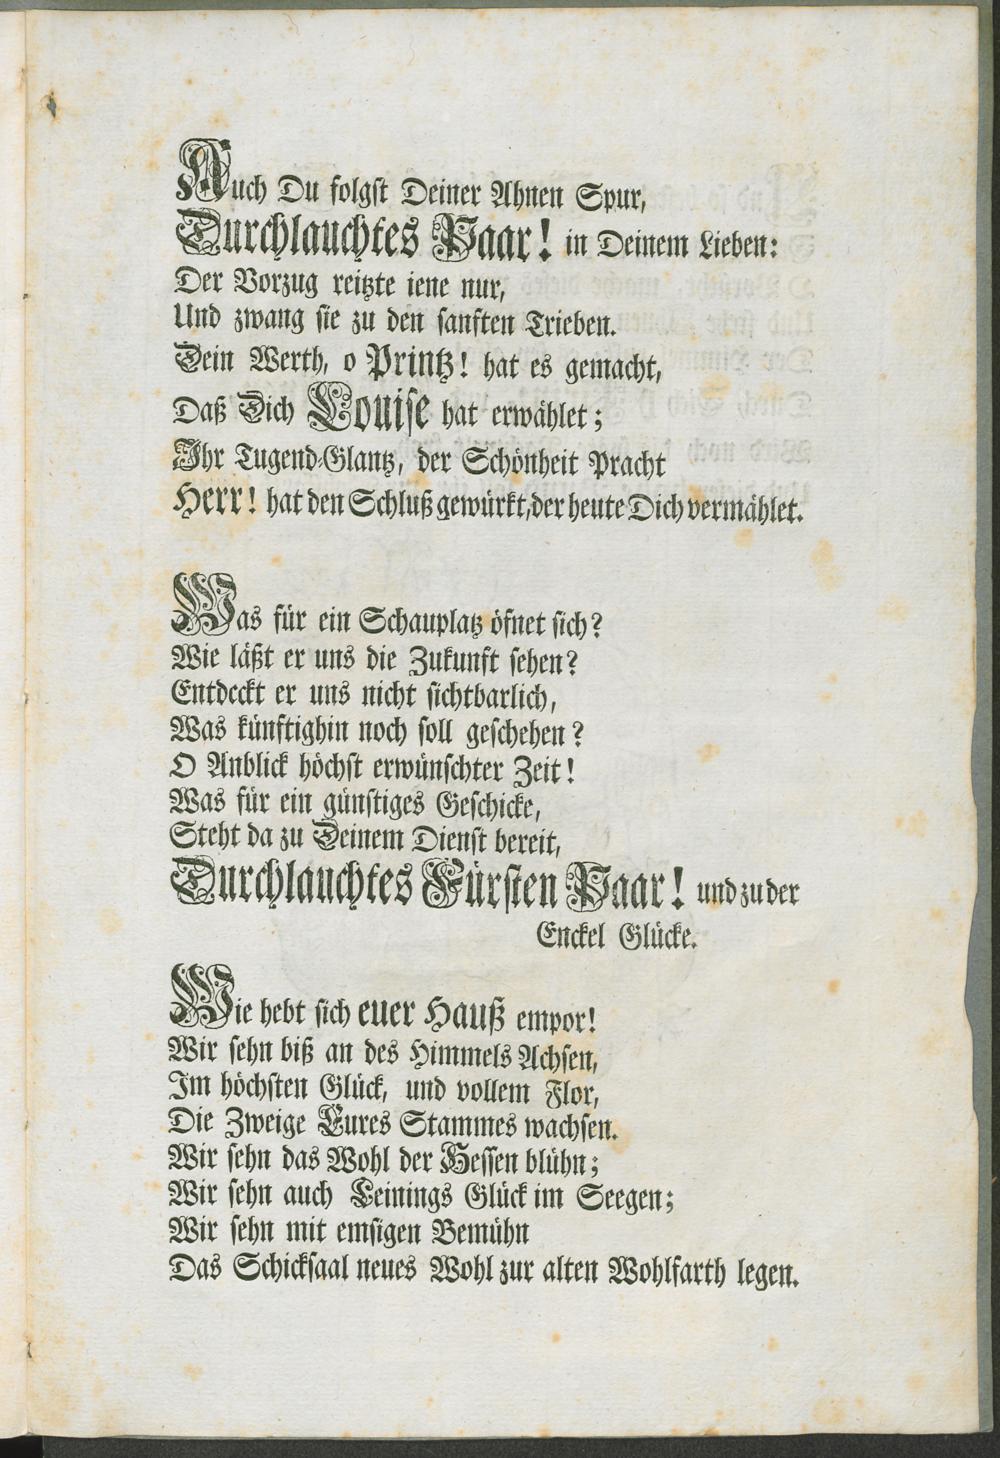 Auch Du folgst Deiner Ahnen Spur,
Durchlauchtes Paar! in Deinem Lieben:
Der Vorzug reitzte iene nur,
Und zwang sie zu den sanften Trieben.
Dein Werth, o Printz! hat es gemacht,
Daß Dich Louise hat erwählet;
Ihr Tugend-Glantz, der Schönheit Pracht
Herr! hat den Schluß gewürkt, der heute Dich vermählet.
Was für ein Schauplatz öfnet sich?
Wie läßt er uns die Zukunft sehen?
Entdeckt er uns nicht sichtbarlich,
Was künftighin noch soll geschehen?
O Anblick höchst erwünschter Zeit!
Was für ein günstiges Geschicke,
Steht da zu Deinem Dienst bereit,
Durchlauchtes Fürsten Paar! und zu der
Enckel Glücke.
Wie hebt sich euer Hauß empor!
Wir sehn biß an des Himmels Achsen,
Im höchsten Glück, und vollem Flor,
Die Zweige Eures Stammes wachsen.
Wir sehn das Wohl der Hessen blühn;
Wir sehn auch Leinings Glück im Seegen;
Wir sehn mit emsigen Bemühn
Das Schicksaal neues Wohl zur alten Wohlfarth legen.